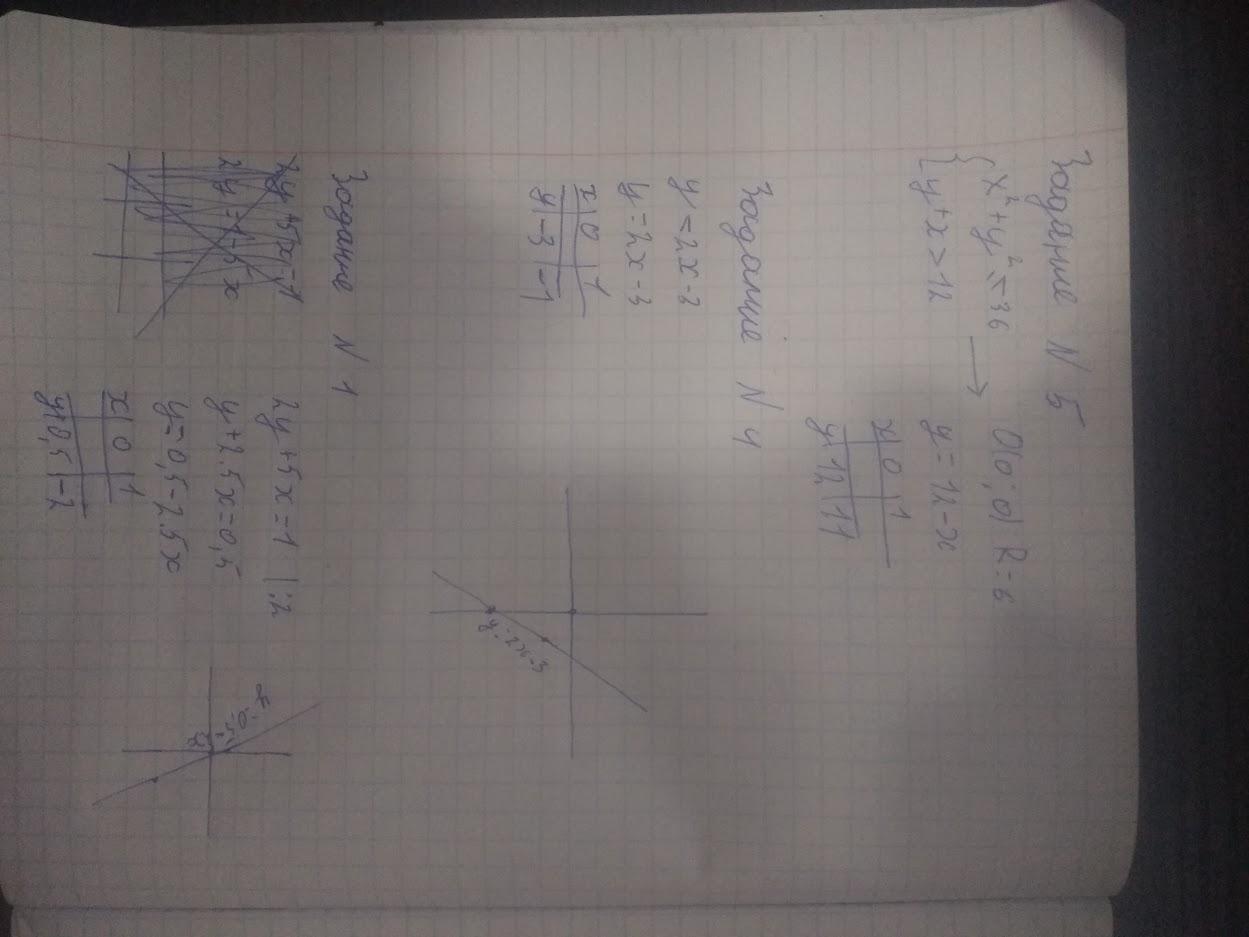 Задание N 5
x²+y²=36 → O(0;0) R=6
y+x=12 y=12-x
x 0 1
y 12 11
Задание N 4
y=2x-3
y=2x-3
x 0 1
y -3 -1
y=2x-3
Задание N 1
2y+5x=1 2y+5x=1 |:2
2y=1-5x y+2.5x=0,5
y=0,5-2.5x
x 0 1
y 0,5 -2